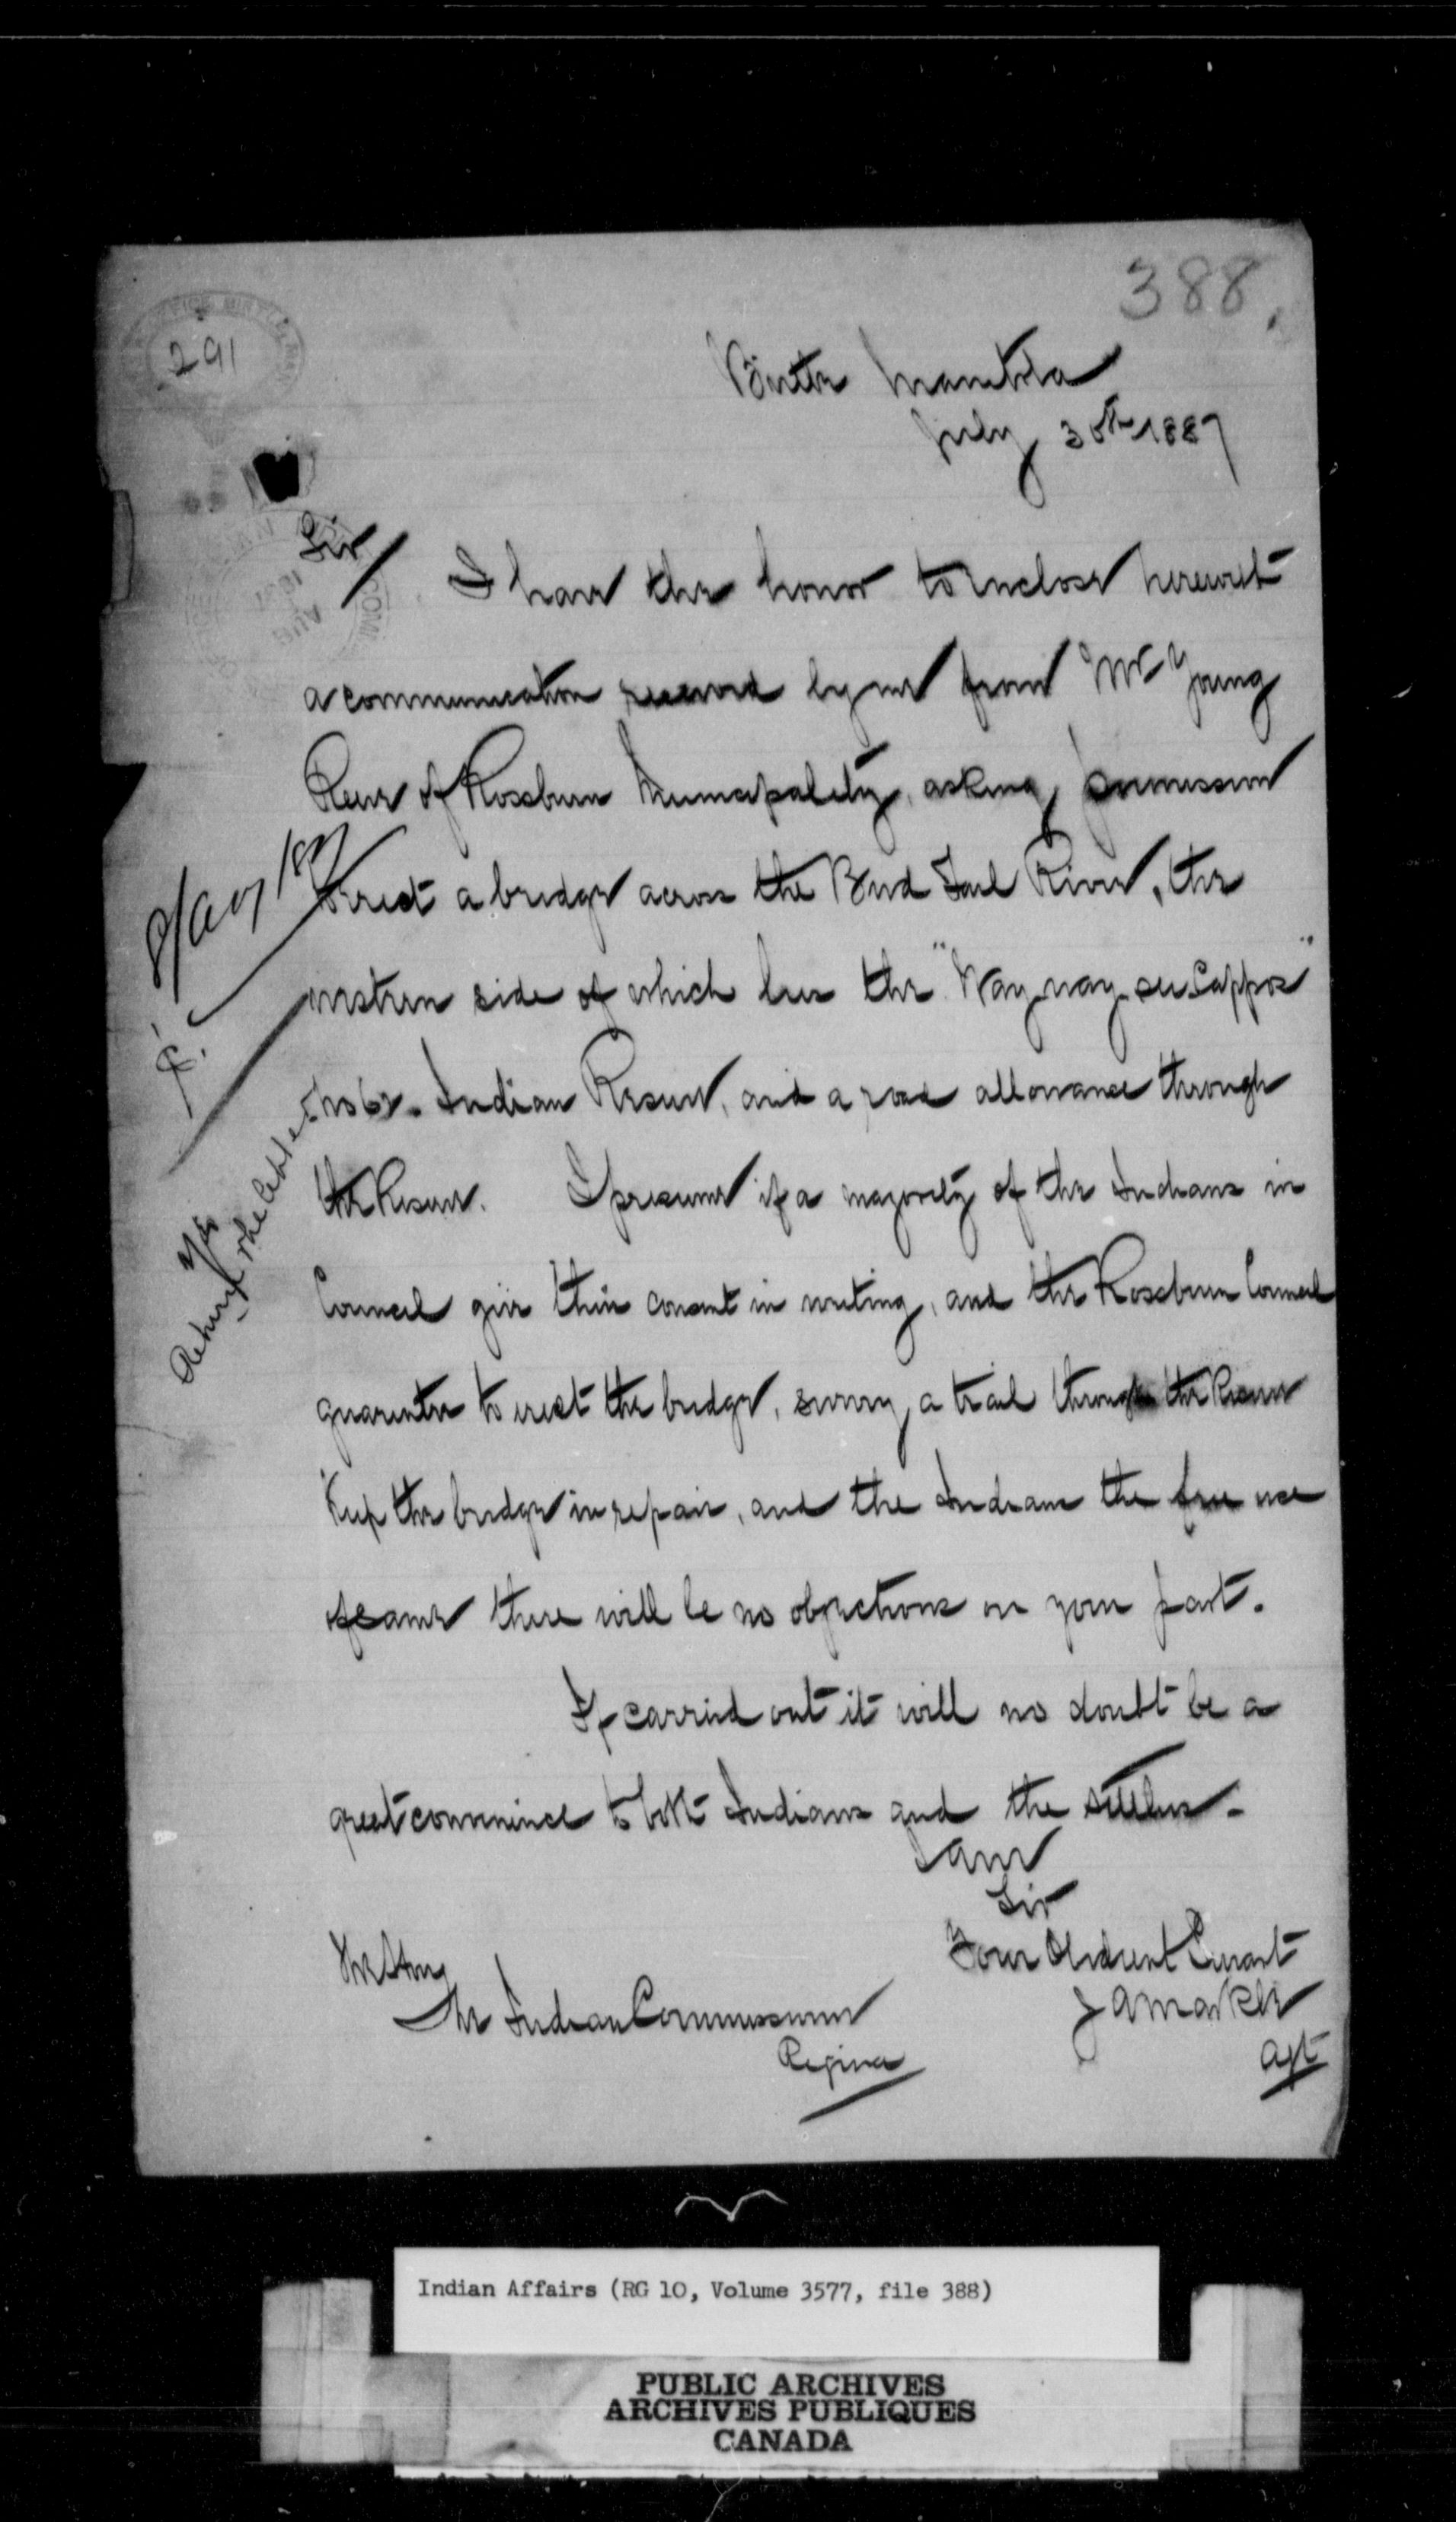 388.
291
Birtle Manitoba
July 30th 1887
Sir/ I have the honor to inclose herewith
a communication received by me from Mr Young
Reeve of Rossburn Municipality, asking permission
to erect a bridge across the Bird Tail River, the
western side of which lies the "Way way see Cappos"
No 62. Indian Reserve, and a road allowance through
the Reserve. I presume if a majority of the Indians in
Council give their consent in writing, and the Rossburn Council
guarantee to erect the bridge, survey a trail through the Reserve
Keep the bridge in repair, and the Indians the free use
of same there will be no objections on your part.
If carried out it will no doubt be a
great convenience to both Indians and the settlers.
I am
Sir
Your Obedient Servant
J A Markle
Agt
The Hon
The Indian Commissioner
Regina
8/Aug/87
Yes
Return
Indian Affairs (RG 10, Volume 3577, file 388)
PUBLIC ARCHIVES
ARCHIVES PUBLIQUES
CANADA